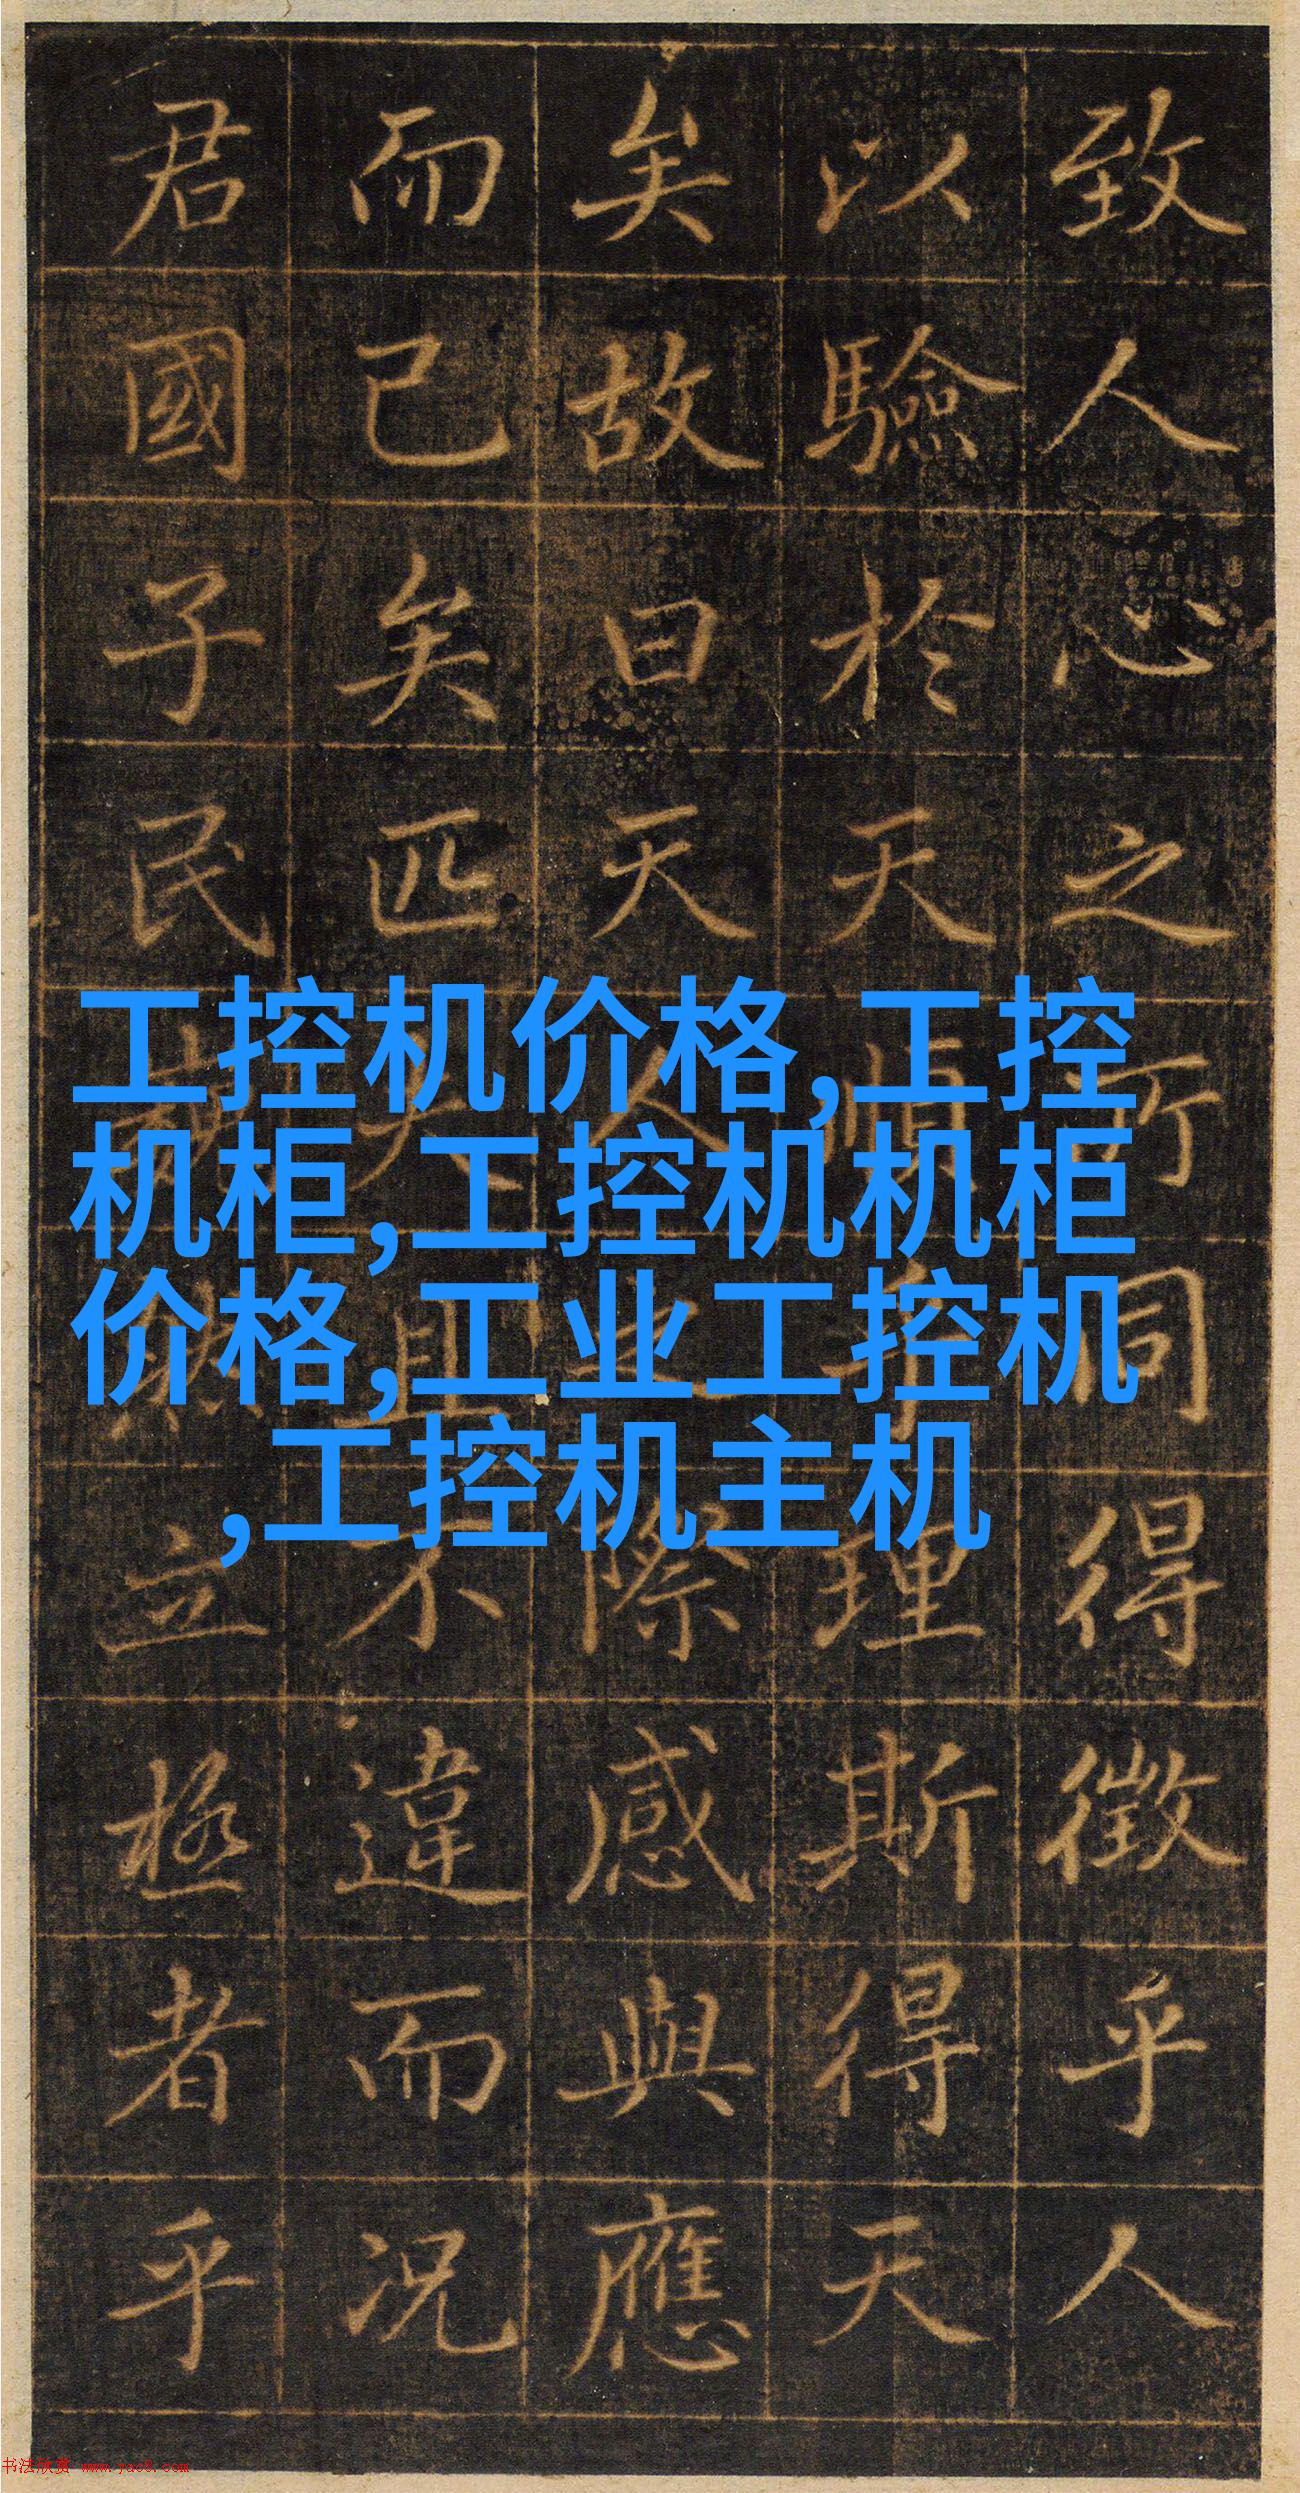 致人心之所同得徵乎人
以驗於天順乎理斯得天
矣故曰天人之際感與應
而已矣匹夫且不違而况
君國子民巍然立極者乎
工控机价格,工控
机柜,工控机机柜
价格,工业工控机
,工控机主机
书法欣赏 www.yac8.com